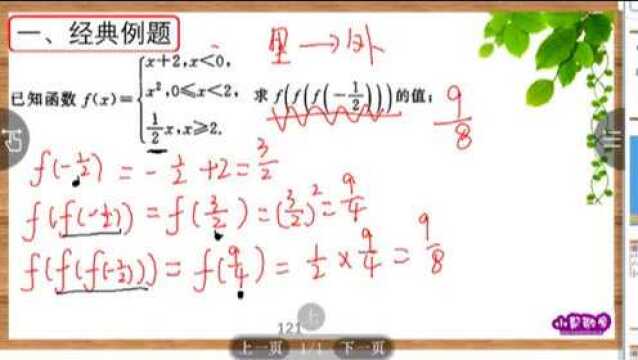 一、经典例题
里→外
已知函数 f(x)={x+2,x<0, x²,0≤x<2, 1/2x,x≥2. 求 f(f(f(-1/2)))的值;
9/8
f(-1/2) = -1/2 +2 = 3/2
f(f(-1/2)) = f(3/2) = (3/2)² = 9/4
f(f(f(-1/2))) = f(9/4) = 1/2 × 9/4 = 9/8
121
上一页 1/1 下一页